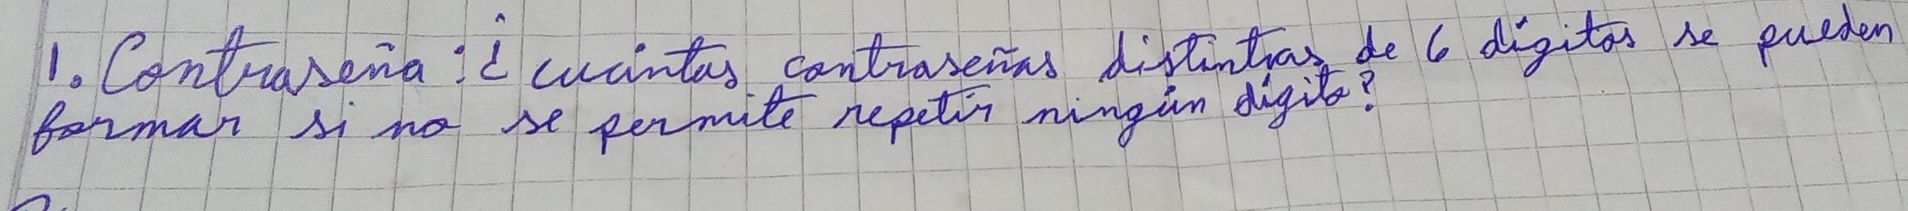 1. Contraseña: ¿cuántas contraseñas distintras de 6 dígitos se pueden
formar si no se permite repetir ningún dígito?